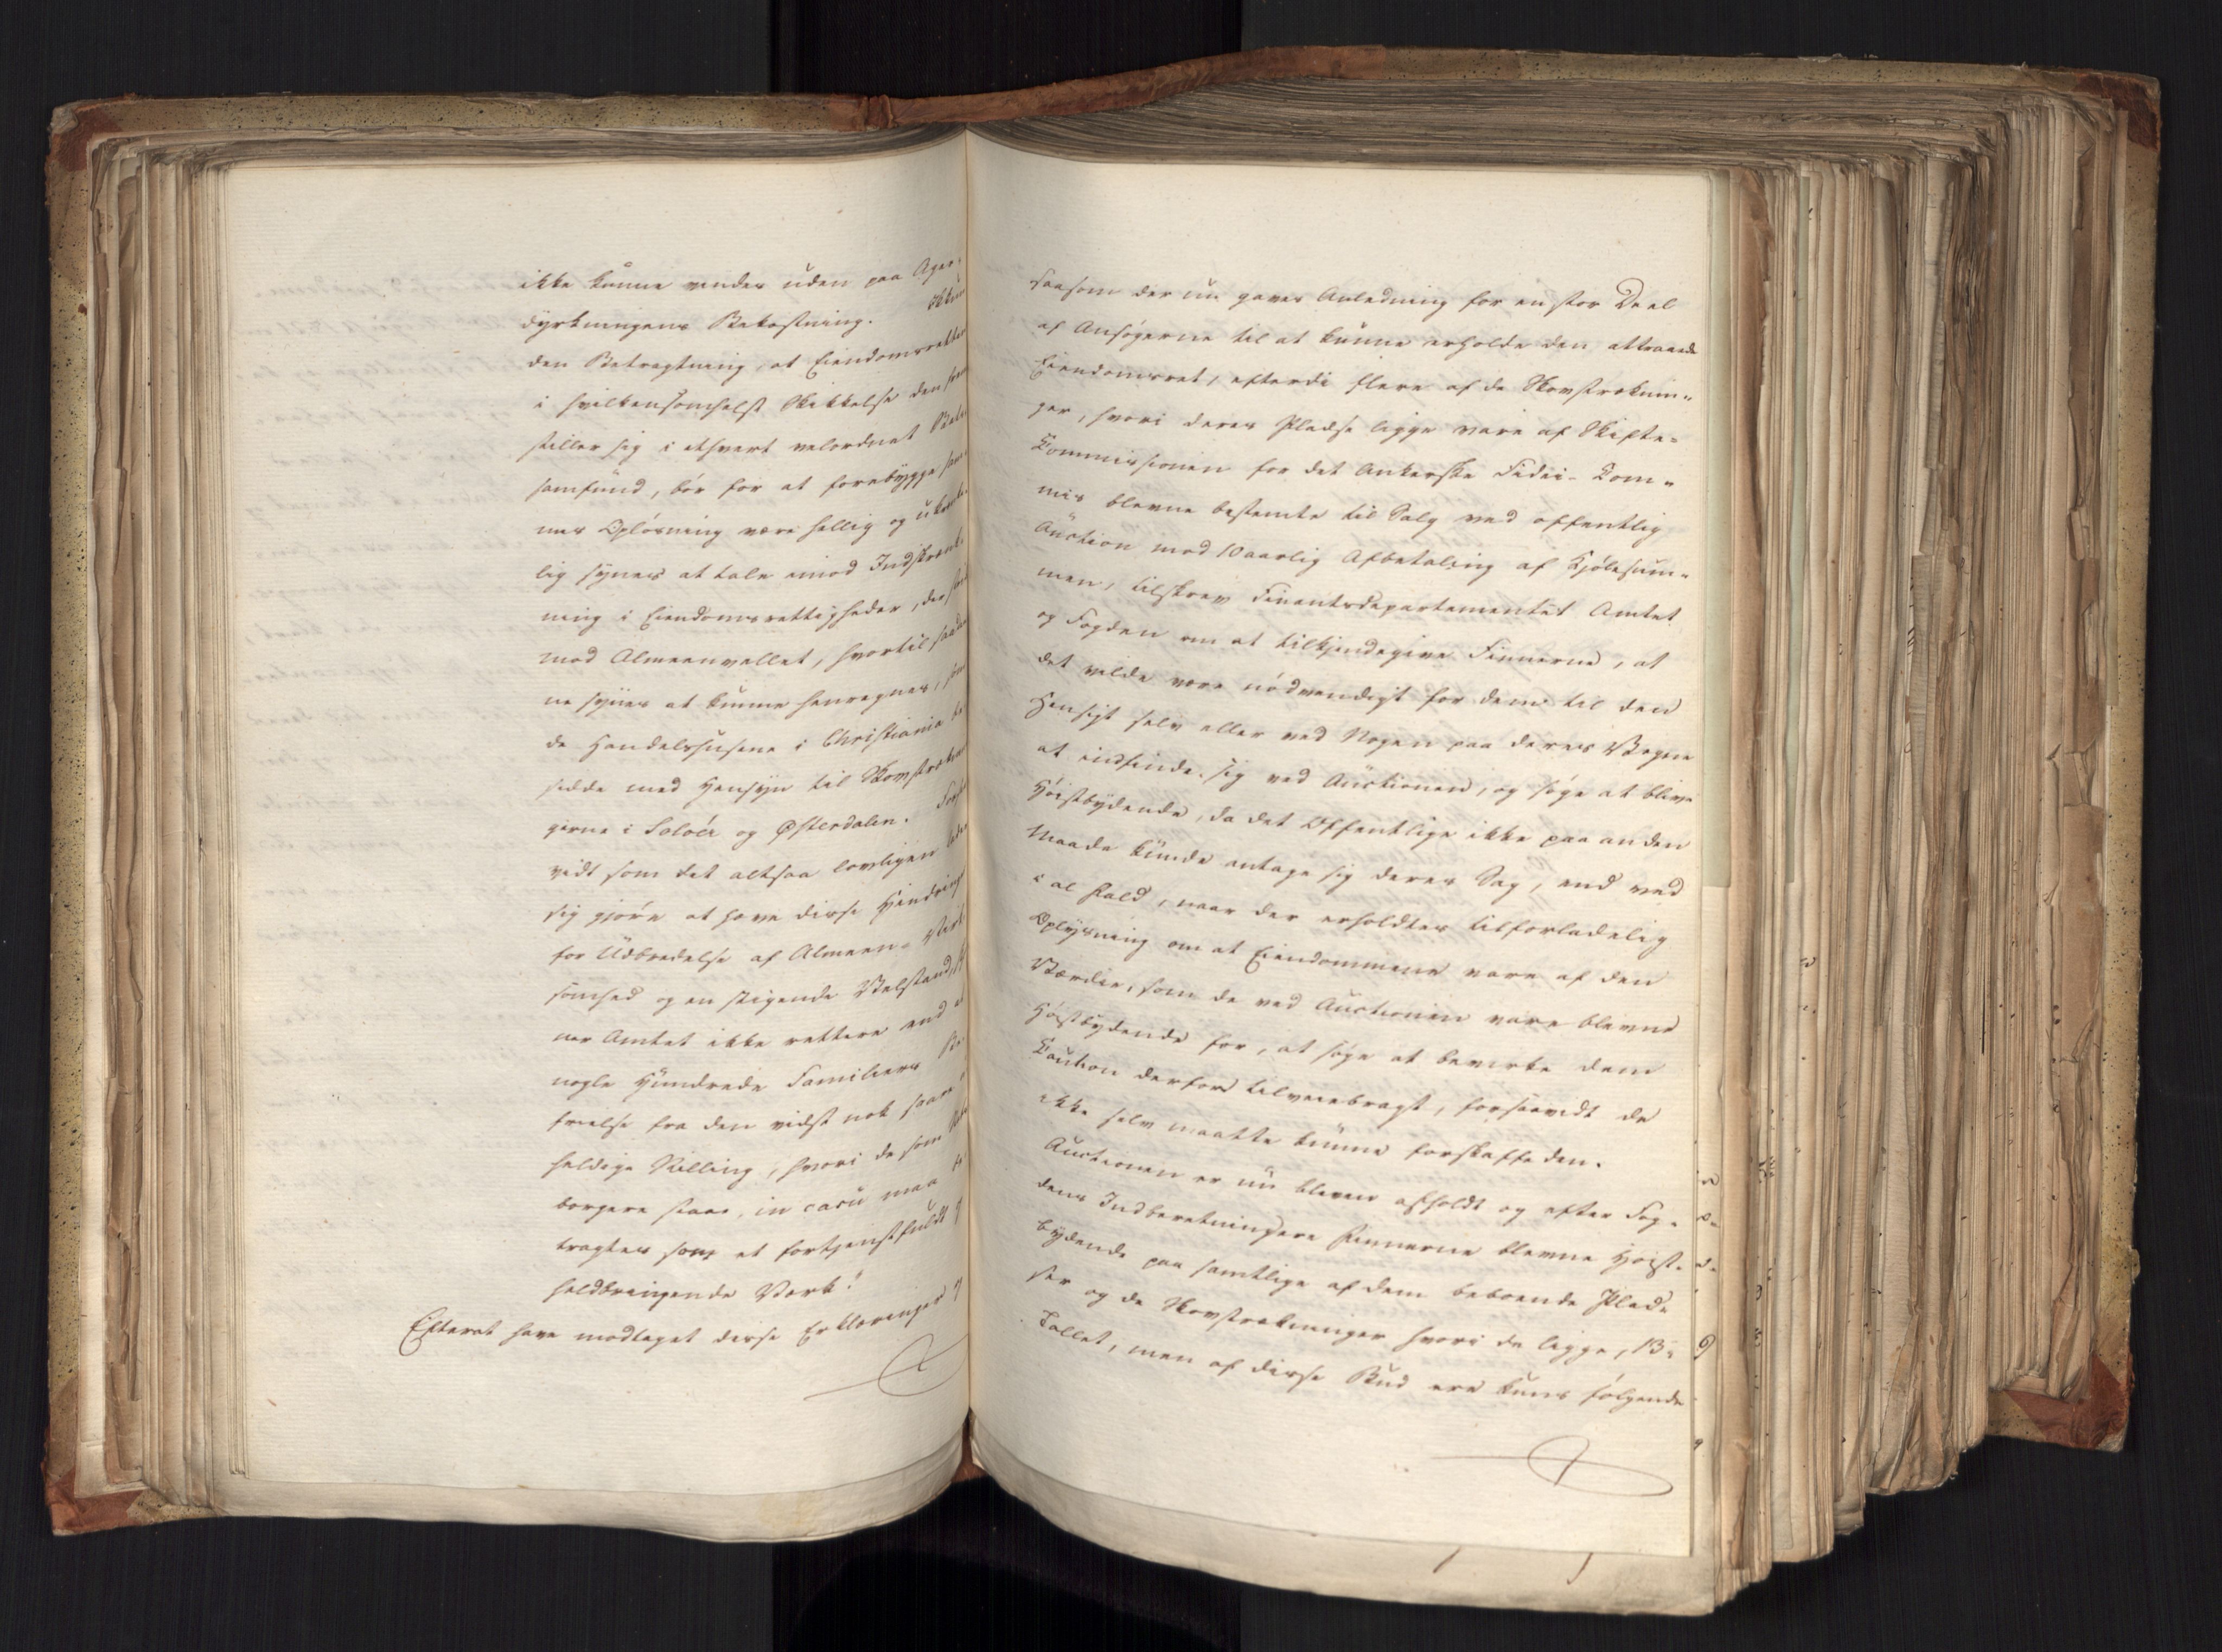 ikke kunne vindes uden paa Ager-
dyrkningens Bekostning.
den Betragtning, at Eiendomsretten
i hvilkensomhelst Skikkelse den frem
stiller sig i ethvert velordnet Stats
samfund, bør for at forebygge sam-
mes Opløsning være hellig og
lig synes at tale imod Indskrænk-
ning i Eiendomsrettigheder, der
mod Almeenvellet, hvortil saada
ne synes at kunne henregnes, som
de Handelshusene i Christiania be
sidde med Hensyn til Skovstræknin
gerne i Soløer og Østerdalen. Forsaa
vidt som det altsaa lovligen lader
sig gjøre at hæve disse Hindringer
for Udbredelse af Almeen- Virk
somhed og en stigende Velstand,
ner Amtet ikke rettere end at
nogle Hundrede Familiers Be
frielse fra den vidst nok saare u
heldige Stilling, hvori de som Stats
borgere staae, in casu maa be
tragtes som et fortjenstfuldt og
heldbringende Værk!
Efterat have modtaget disse Erklæringer og
saasom der nu gaves Anledning for en stor Deel
af Ansøgerne til at kunne erholde den attraaede
Eiendomsret, efterdi flere af de Skovstræknin-
ger, hvori deres Pladse ligge vare af Skifte-
Commissionen for det Ankerske Fidei-Com-
mis blevne bestemte til Salg ved offentlig
Auction med 10aarlig Afbetaling af Kjøbesum-
men, tilskrev Finantsdepartementet Amtet
og Fogden om at tilkjendegive Finnerne, at
det vilde være nødvendigt for dem til den
Hensigt selv eller ved Nogen paa deres Vegne
at indfinde sig ved Auctionen, og søge at blive
Høistbydende, da det Offentlige ikke paa anden
Maade kunde antage sig deres Sag, end ved
i al Fald, naar der erholdtes tilforladelig
Oplysning om at Eiendommene vare af den
Værdie, som de ved Auctionen vare blevne
Høistbydende for, at søge at bevirke dem
Caution derfor tilveiebragt, forsaavidt de
ikke selv maatte kunne forskaffe den.
Auctionen er nu bleven afholdt og efter Fog-
dens Indberetninger ere Finnerne blevne Høist-
bydende paa samtlige af dem beboende Plad-
ser og de Skovstrækninger hvori de ligge, 13 i
Tallet, men af disse Bud ere kuns følgende